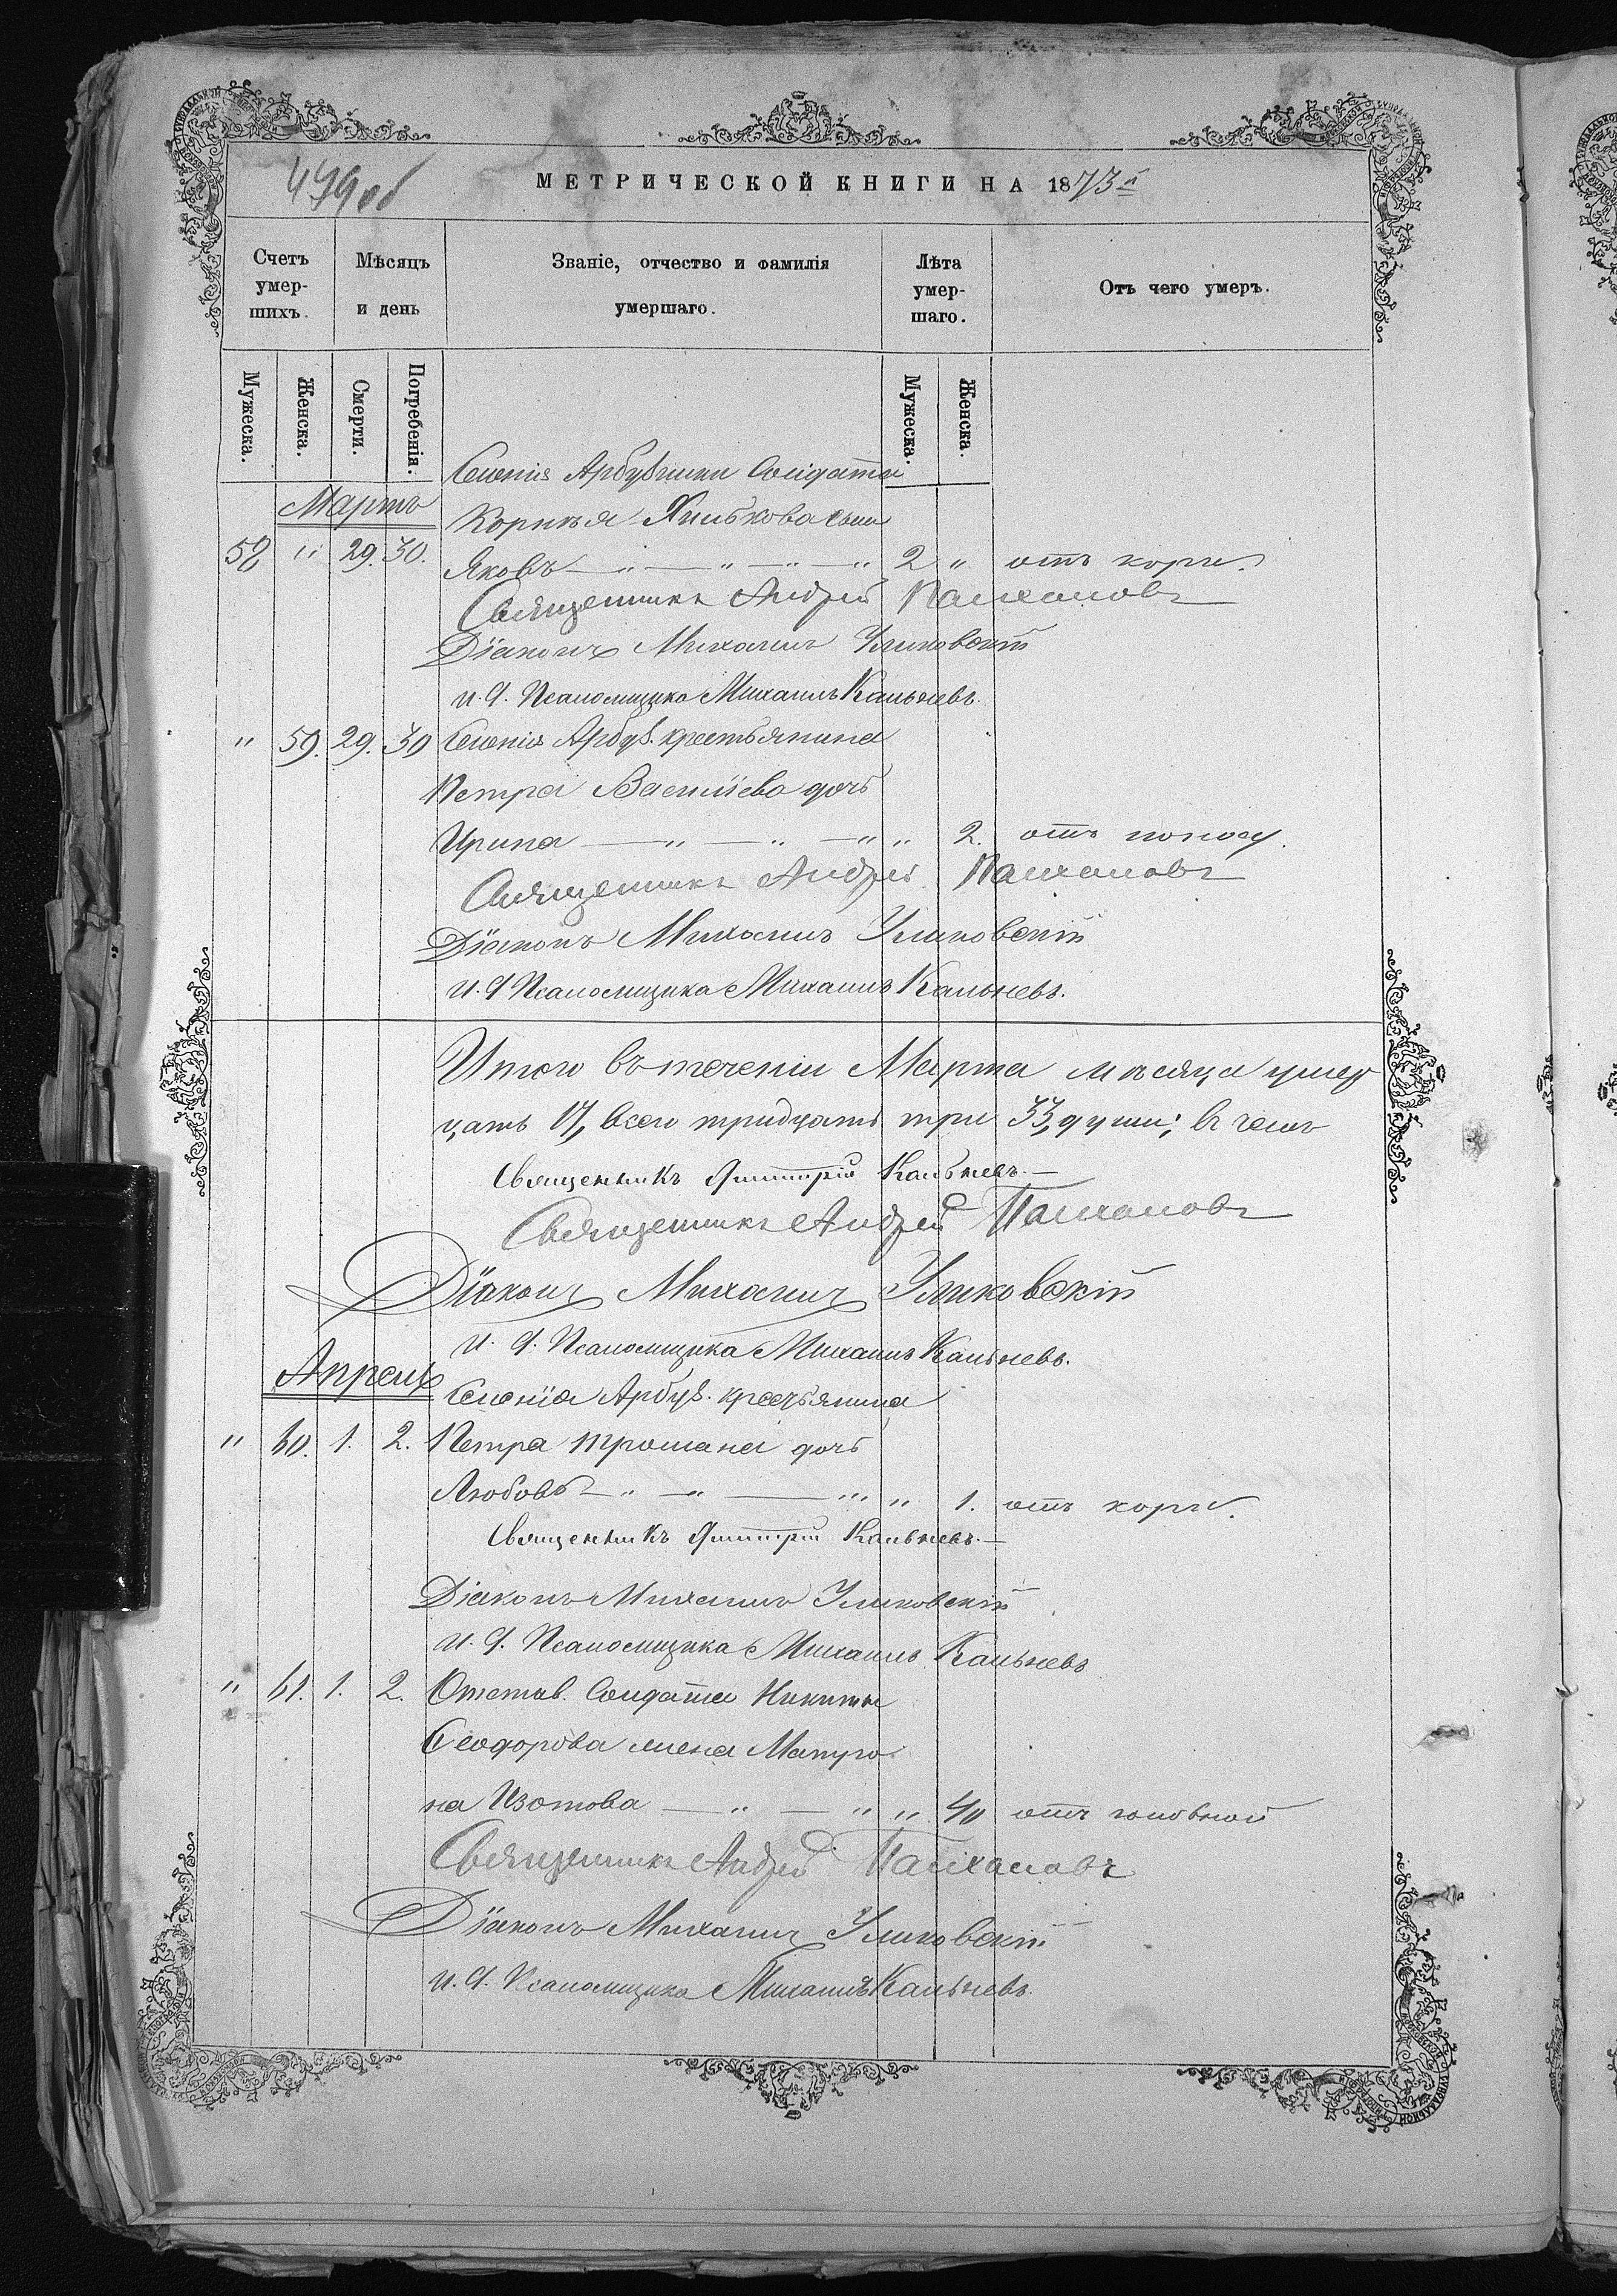 479 об
МЕТРИЧЕСКОЙ КНИГИ НА 1873 й
Счетъ умер- шихъ.
Мѣсяцъ и день
Званіе, отчество и фамилія умершаго.
Лѣта умер- шаго.
Отъ чего умеръ.
Мужеска.
Женска.
Смерти.
Погребенія.
Мужеска.
Женска.
Селенія Арбузинки Солдата
Мартъ
Корнѣя Хилькова сынъ
58 " 29. 30. Яковъ — " — " — " — " 2 " отъ кори.
Священникъ Андрей
Діаконъ Михаилъ
И. Д. Псаломщика Михаилъ Кальневъ.
" 59. 29. 30 Селенія Арбуз. крестьянина
Петра Василіева дочь
Ирина — " — " — " " 2. отъ поносу.
Священникъ Андрей
Діаконъ Михаилъ
И. Д. Псаломщика Михаилъ Кальневъ.
Итого въ теченіи Марта мѣсяца умер
цать 17, всего тридцать три 33, души; въ чемъ
Священникъ Димитрій Кальневъ. —
Священникъ Андрей
Діаконъ Михаилъ
И. Д. Псаломщика Михаилъ Кальневъ.
Апрель
Селенія Арбуз. крестьянина
" 60. 1. 2. Петра Трошана дочь
Любовь — " — " — " " 1. отъ кори.
Священникъ Димитрій Кальневъ. —
Діаконъ Михаилъ
И. Д. Псаломщика Михаилъ Кальневъ
" 61. 1. 2. Отстав. Солдата Никиты
Ѳеодорова жена Матро-
на Изотова — " — " " 40 отъ головной
Священникъ Андрей
Діаконъ Михаилъ
И. Д. Псаломщика Михаилъ Кальневъ.